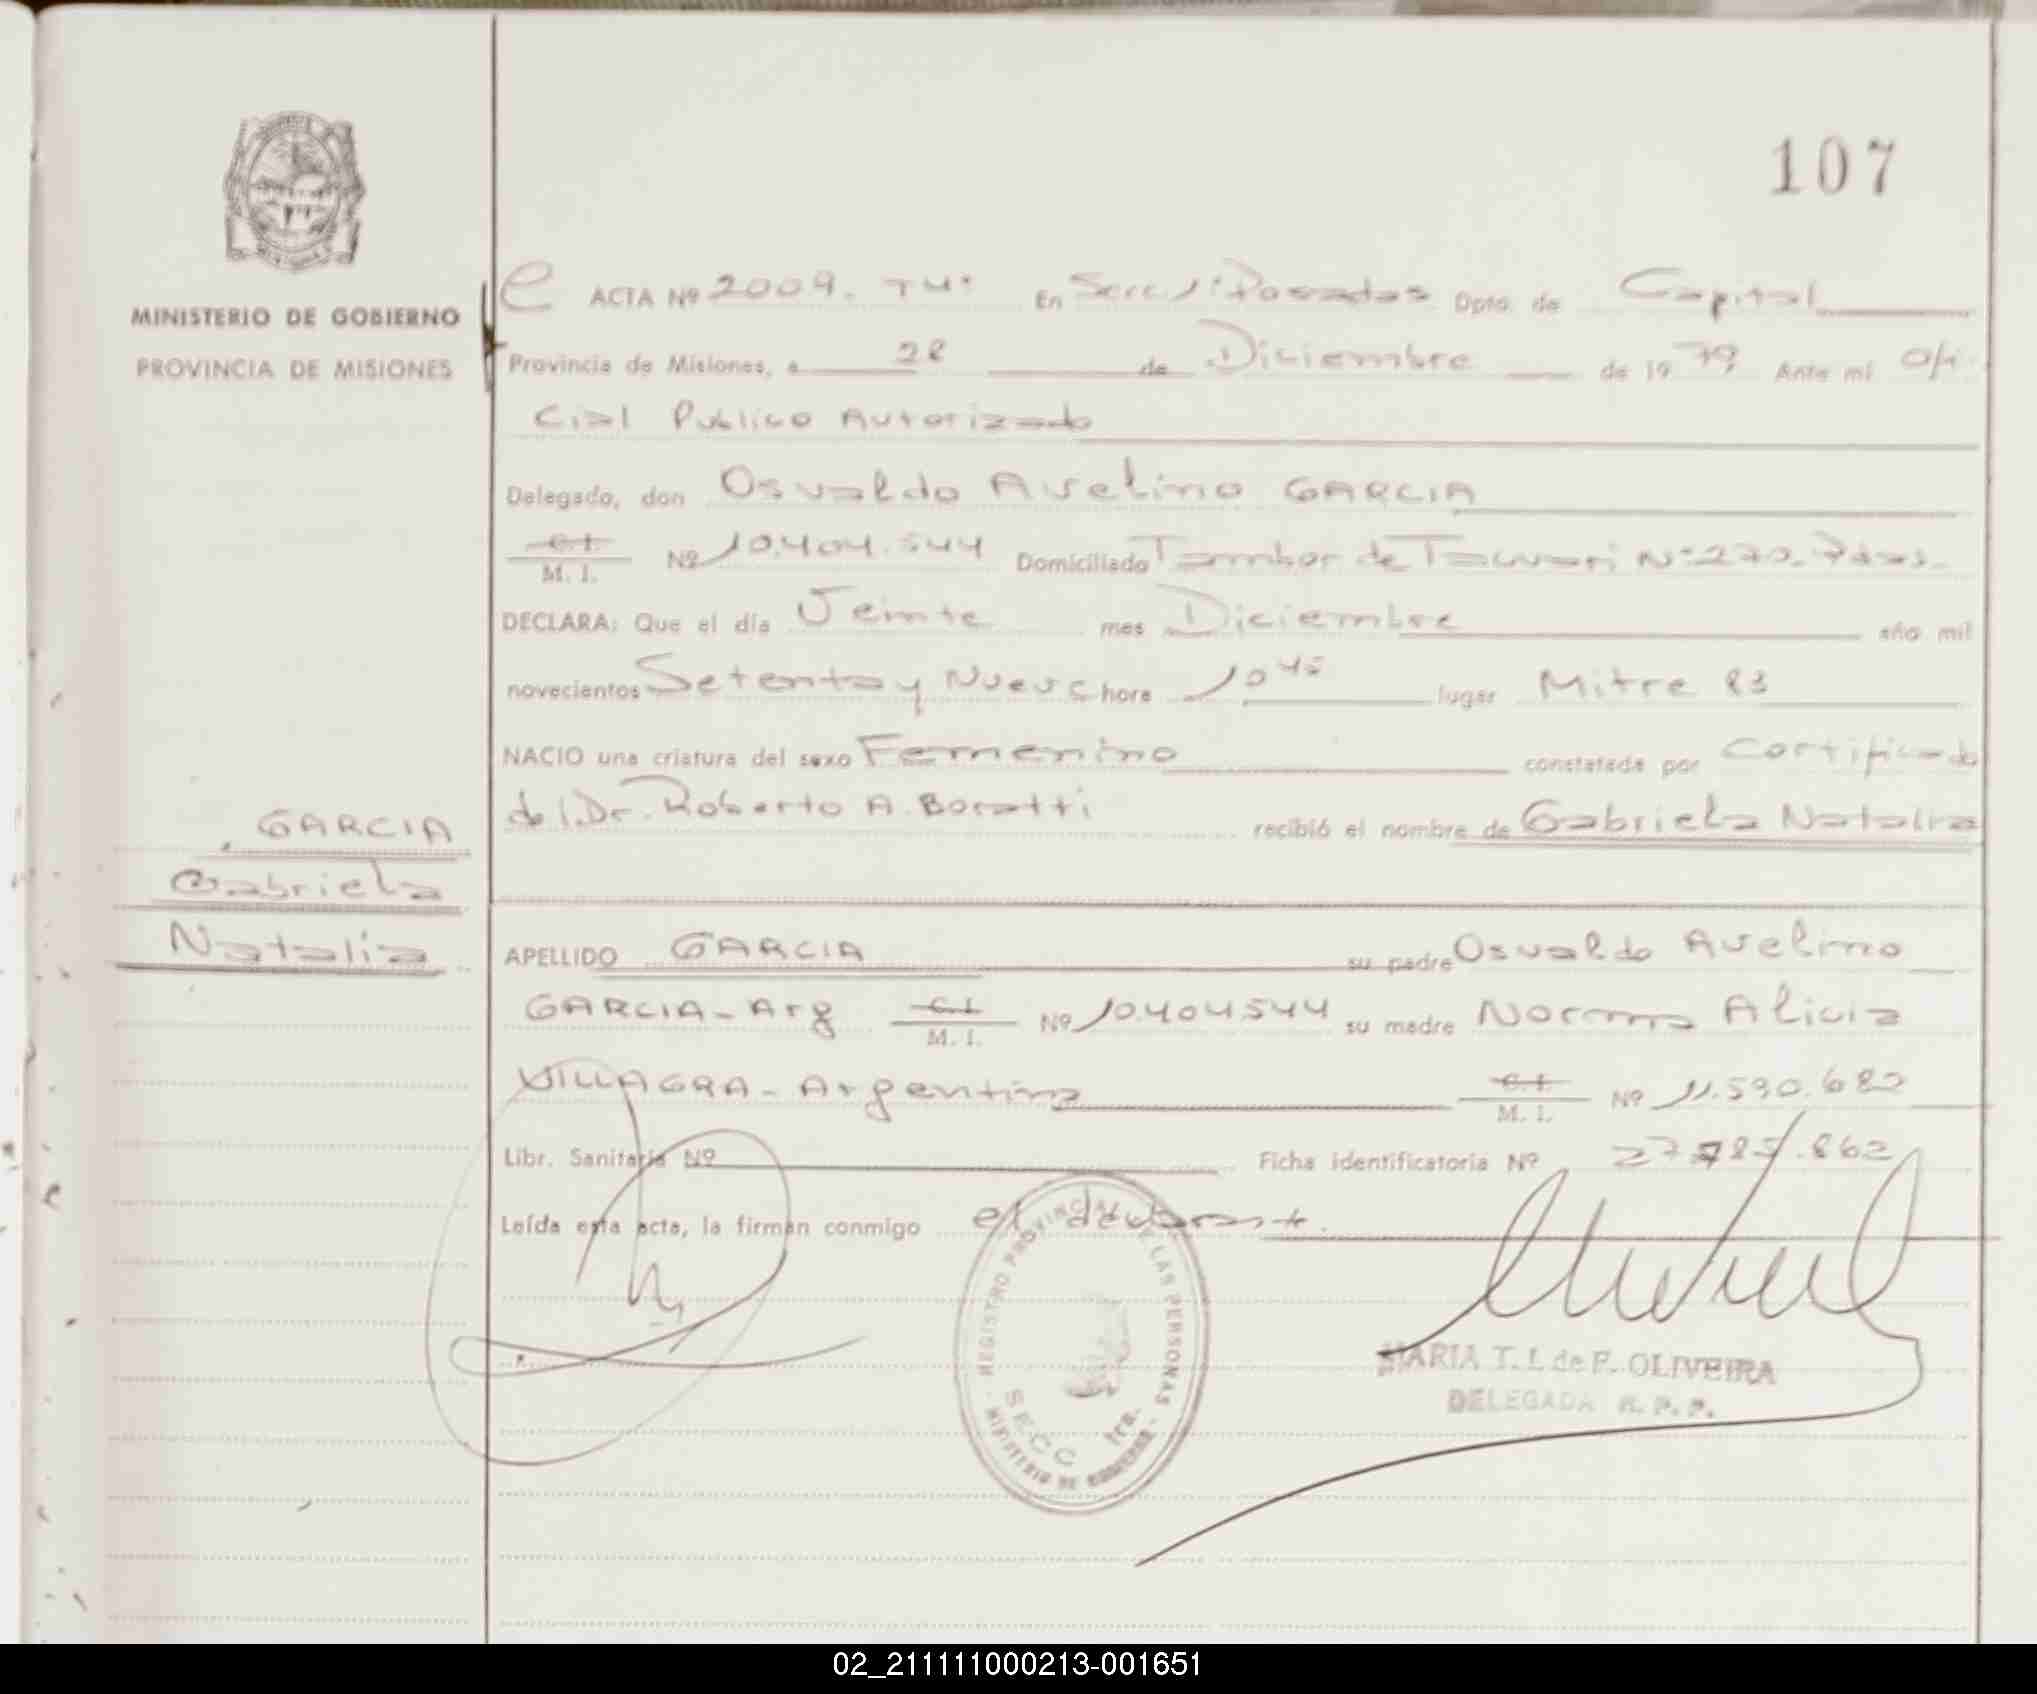 107
MINISTERIO DE GOBIERNO
PROVINCIA DE MISIONES
ACTA Nº 2009. T4º En Secc. 1ª Posadas Dpto. de Capital
Provincia de Misiones, a 28 de Diciembre de 1979 Ante mi Ofi-
cial Publico Autorizado
Delegado, don Osvaldo Avelino GARCIA
C.I. M. I. Nº 10.404.544 Domiciliado Tambor de Tacuari Nº 270. Pdas.
DECLARA: Que el día Veinte mes Diciembre año mil
novecientos Setenta y Nueve hora 10 45 lugar Mitre 83
NACIO una criatura del sexo Femenino constatada por Certificado
del Dr. Roberto A. Boratti recibió el nombre de Gabriela Natalia
GARCIA
Gabriela
Natalia
APELLIDO GARCIA su padre Osvaldo Avelino
GARCIA - Arg C.I. M. I. Nº 10.404544 su madre Norma Alicia
VILLAGRA - Argentina C.I. M. I. Nº 11.590.682
Libr. Sanitaria Nº Ficha identificatoria Nº 862
Leída esta acta, la firman conmigo el declarante.
REGISTRO PROVINCIAL DE LAS PERSONAS
SECC 1ra.
MINISTERIO DE GOBIERNO
MARIA T. L. de F. OLIVEIRA
DELEGADA R. P. P.
02_211111000213-001651